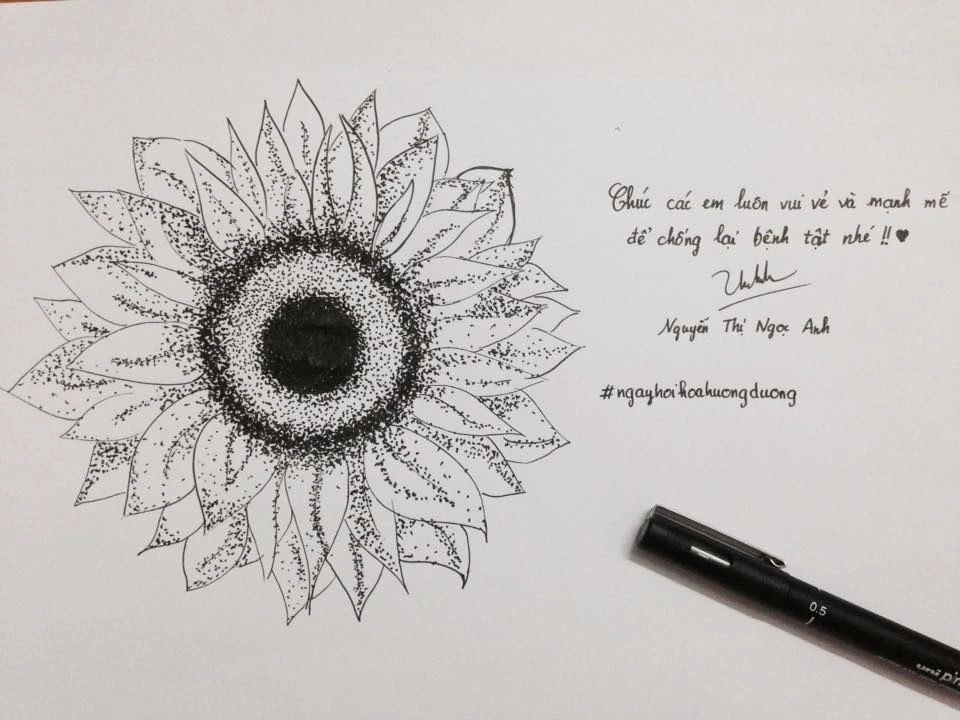 Chúc các em luôn vui vẻ và mạnh mẽ
để chống lại bệnh tật nhé !! ♥
Nguyễn Thị Ngọc Anh
#ngayhoihoahuongduong
0.5
uni pin